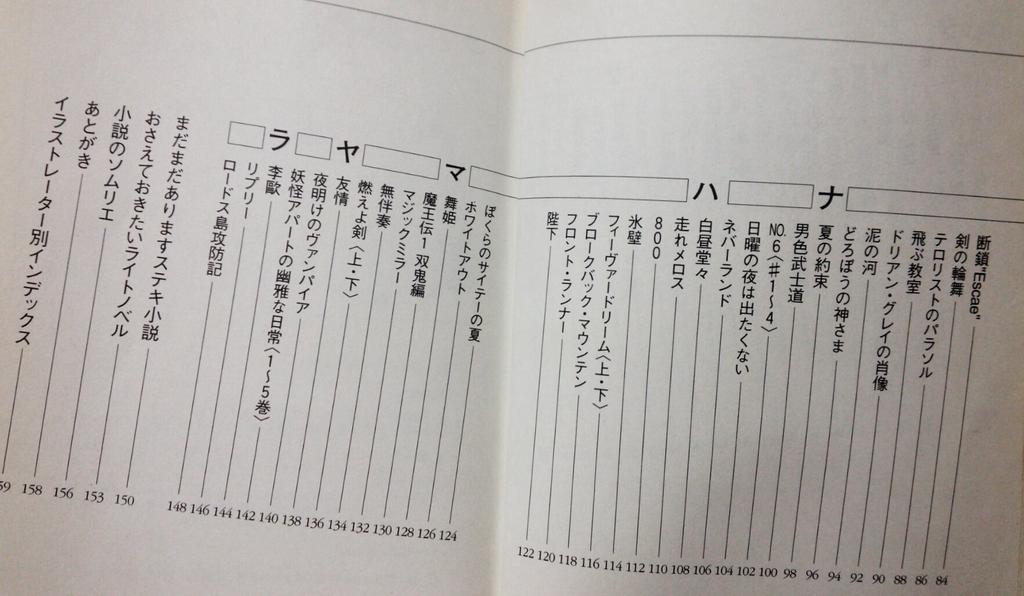 断鎖"Escae" 84
剣の輪舞 86
テロリストのパラソル 88
飛ぶ教室 90
ドリアン・グレイの肖像 92
泥の河 94
どろぼうの神さま 96
ナ
夏の約束 98
男色武士道 100
NO.6〈♯1〜4〉 102
日曜の夜は出たくない 104
ネバーランド 106
ハ
白昼堂々 108
走れメロス 110
800 112
氷壁 114
フィーヴァードリーム〈上・下〉 116
ブロークバック・マウンテン 118
フロント・ランナー 120
陛下 122
ぼくらのサイテーの夏 124
ホワイトアウト 126
マ
舞姫 128
魔王伝1 双鬼編 130
マジックミラー 132
無伴奏 134
燃えよ剣〈上・下〉 136
ヤ
友情 138
夜明けのヴァンパイア 140
妖怪アパートの幽雅な日常〈1〜5巻〉 142
ラ
李歐 144
リプリー 146
ロードス島攻防記 148
まだまだありますステキ小説 150
おさえておきたいライトノベル 153
小説のソムリエ 156
あとがき 158
イラストレーター別インデックス 59